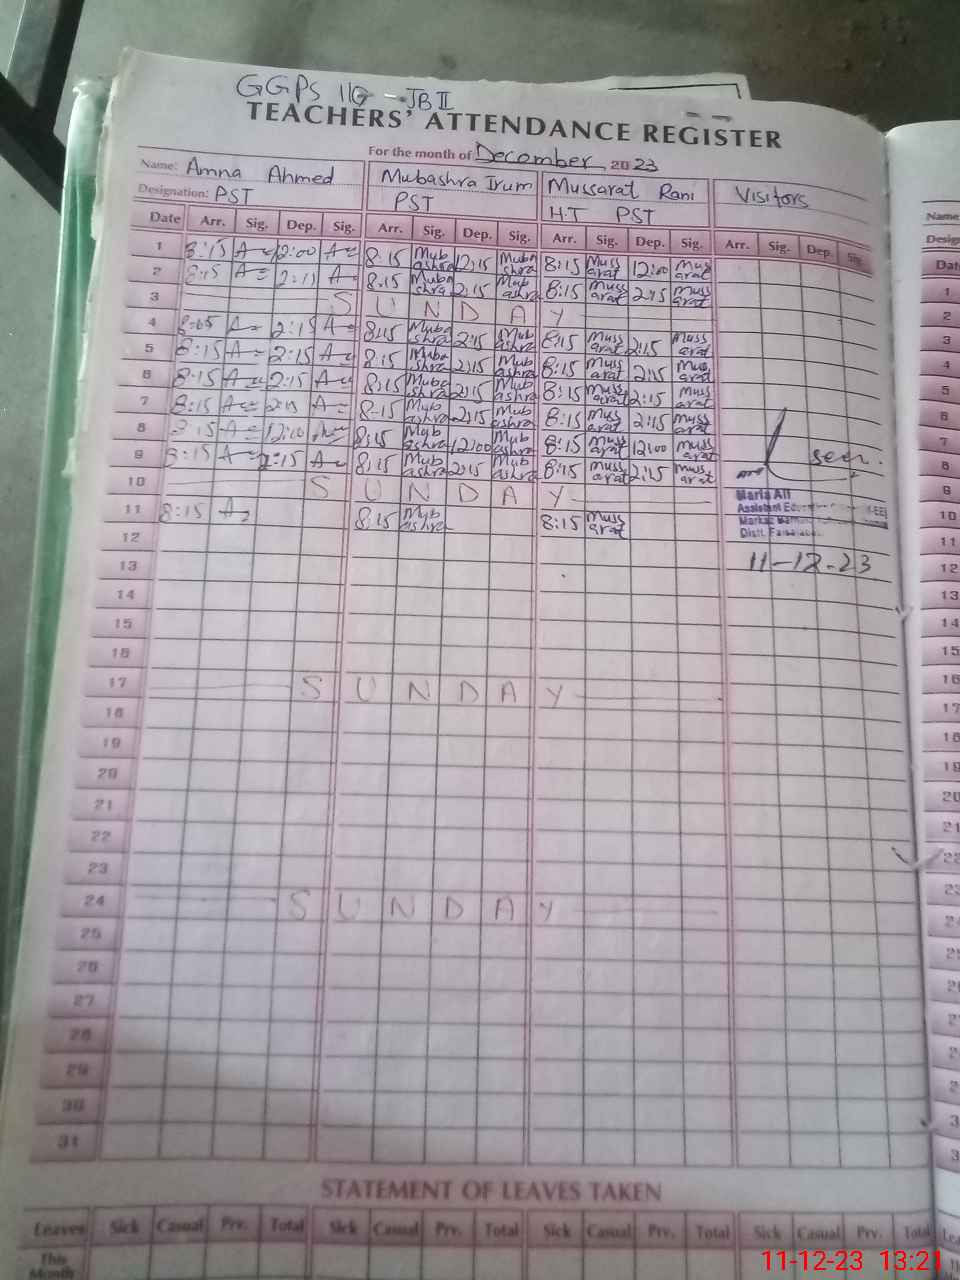 GGPS 116 - JB II
TEACHERS' ATTENDANCE REGISTER
For the month of December 2023
Name: Amna Ahmed Mubashra Irum Mussarat Rani Visitors
Designation: PST PST H.T PST
Date Arr. Sig. Dep. Sig. Arr. Sig. Dep. Sig. Arr. Sig. Dep. Sig. Arr. Sig. Dep. Sig.
1 8:15 A 12:00 A 8:15 Mubashra 12:15 Mubashra 8:15 Mussarat 12:00 Mussarat
2 8:15 A 2:15 A 8:15 Mubashra 2:15 Mubashra 8:15 Mussarat 2:15 Mussarat
3 SUNDAY
4 A 2:15 A 8:15 Mubashra 2:15 Mubashra 8:15 Mussarat 2:15 Mussarat
5 8:15 A 2:15 A 8:15 Mubashra 2:15 Mubashra 8:15 Mussarat 2:15 Mussarat
6 8:15 A 2:15 A 8:15 Mubashra 2:15 Mubashra 8:15 Mussarat 2:15 Mussarat
7 8:15 A 2:15 A 8:15 Mubashra 2:15 Mubashra 8:15 Mussarat 2:15 Mussarat
8 8:15 A 12:00 8:15 Mubashra 12:00 Mubashra 8:15 Mussarat 12:00 Mussarat
9 8:15 A 2:15 A 8:15 Mubashra 2:15 Mubashra 8:15 Mussarat 2:15 Mussarat seen.
10 SUNDAY
Maria Ali
11 8:15 A 8:15 Mubashra 8:15 Mussarat
Assistant
Markaz
Distt. Faisalabad
12
11-12-23
13
14
15
16
17 SUNDAY
18
19
20
21
22
23
24 SUNDAY
25
26
27
28
29
30
31
STATEMENT OF LEAVES TAKEN
Leaves Sick Casual Prv. Total Sick Casual Prv. Total Sick Casual Prv. Total Sick Casual Prv. Total
This
Month
Name
1
2
3
4
5
6
7
8
9
10
11
12
13
14
15
16
17
18
19
20
21
22
23
11-12-23 13:21